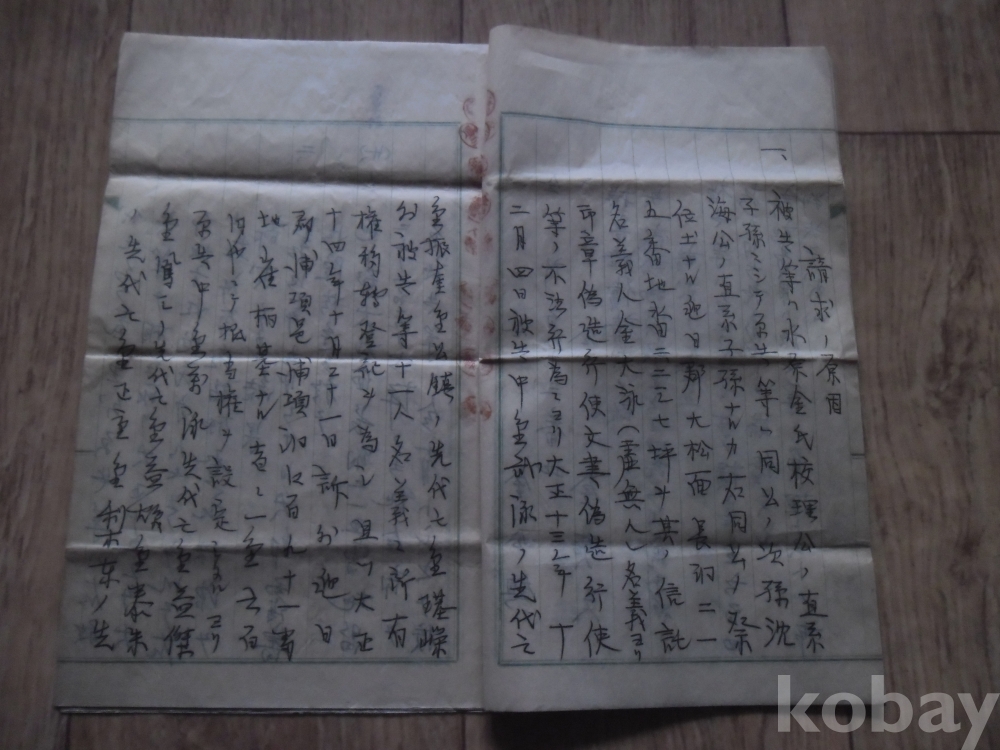 一、
請求ノ原因
被告等ハ水原金氏校理公ノ直系
子孫ニシテ原告等ハ同公ノ次孫沈
海公ノ直系子孫ナルカ右同公ノ祭
位土ナル迎日郡大松面長洞二一
五番地畓二三三七坪ヲ其ノ信託
名義人金大泳(虚無人)名義ヨリ
印章偽造行使文書偽造行使
等ノ不法行為ニヨリ大正十三年十
二月四日被告中金武泳ノ先代亡
金振奎金公鎮ノ先代亡金
外被告等十一人名義ニ所有
権移転登記ヲ為シ且ツ大正
十四年十月三十一日訴外迎日
郡浦項邑浦項洞百九十一番
地崔柄基ナル者ニ金六百
円也ニテ抵当権ヲ設定
原告中金 泳先代亡金益傑
金鳳 ノ先代亡金益 金泰朱
ノ先代亡金正 金 東ノ先
kobay